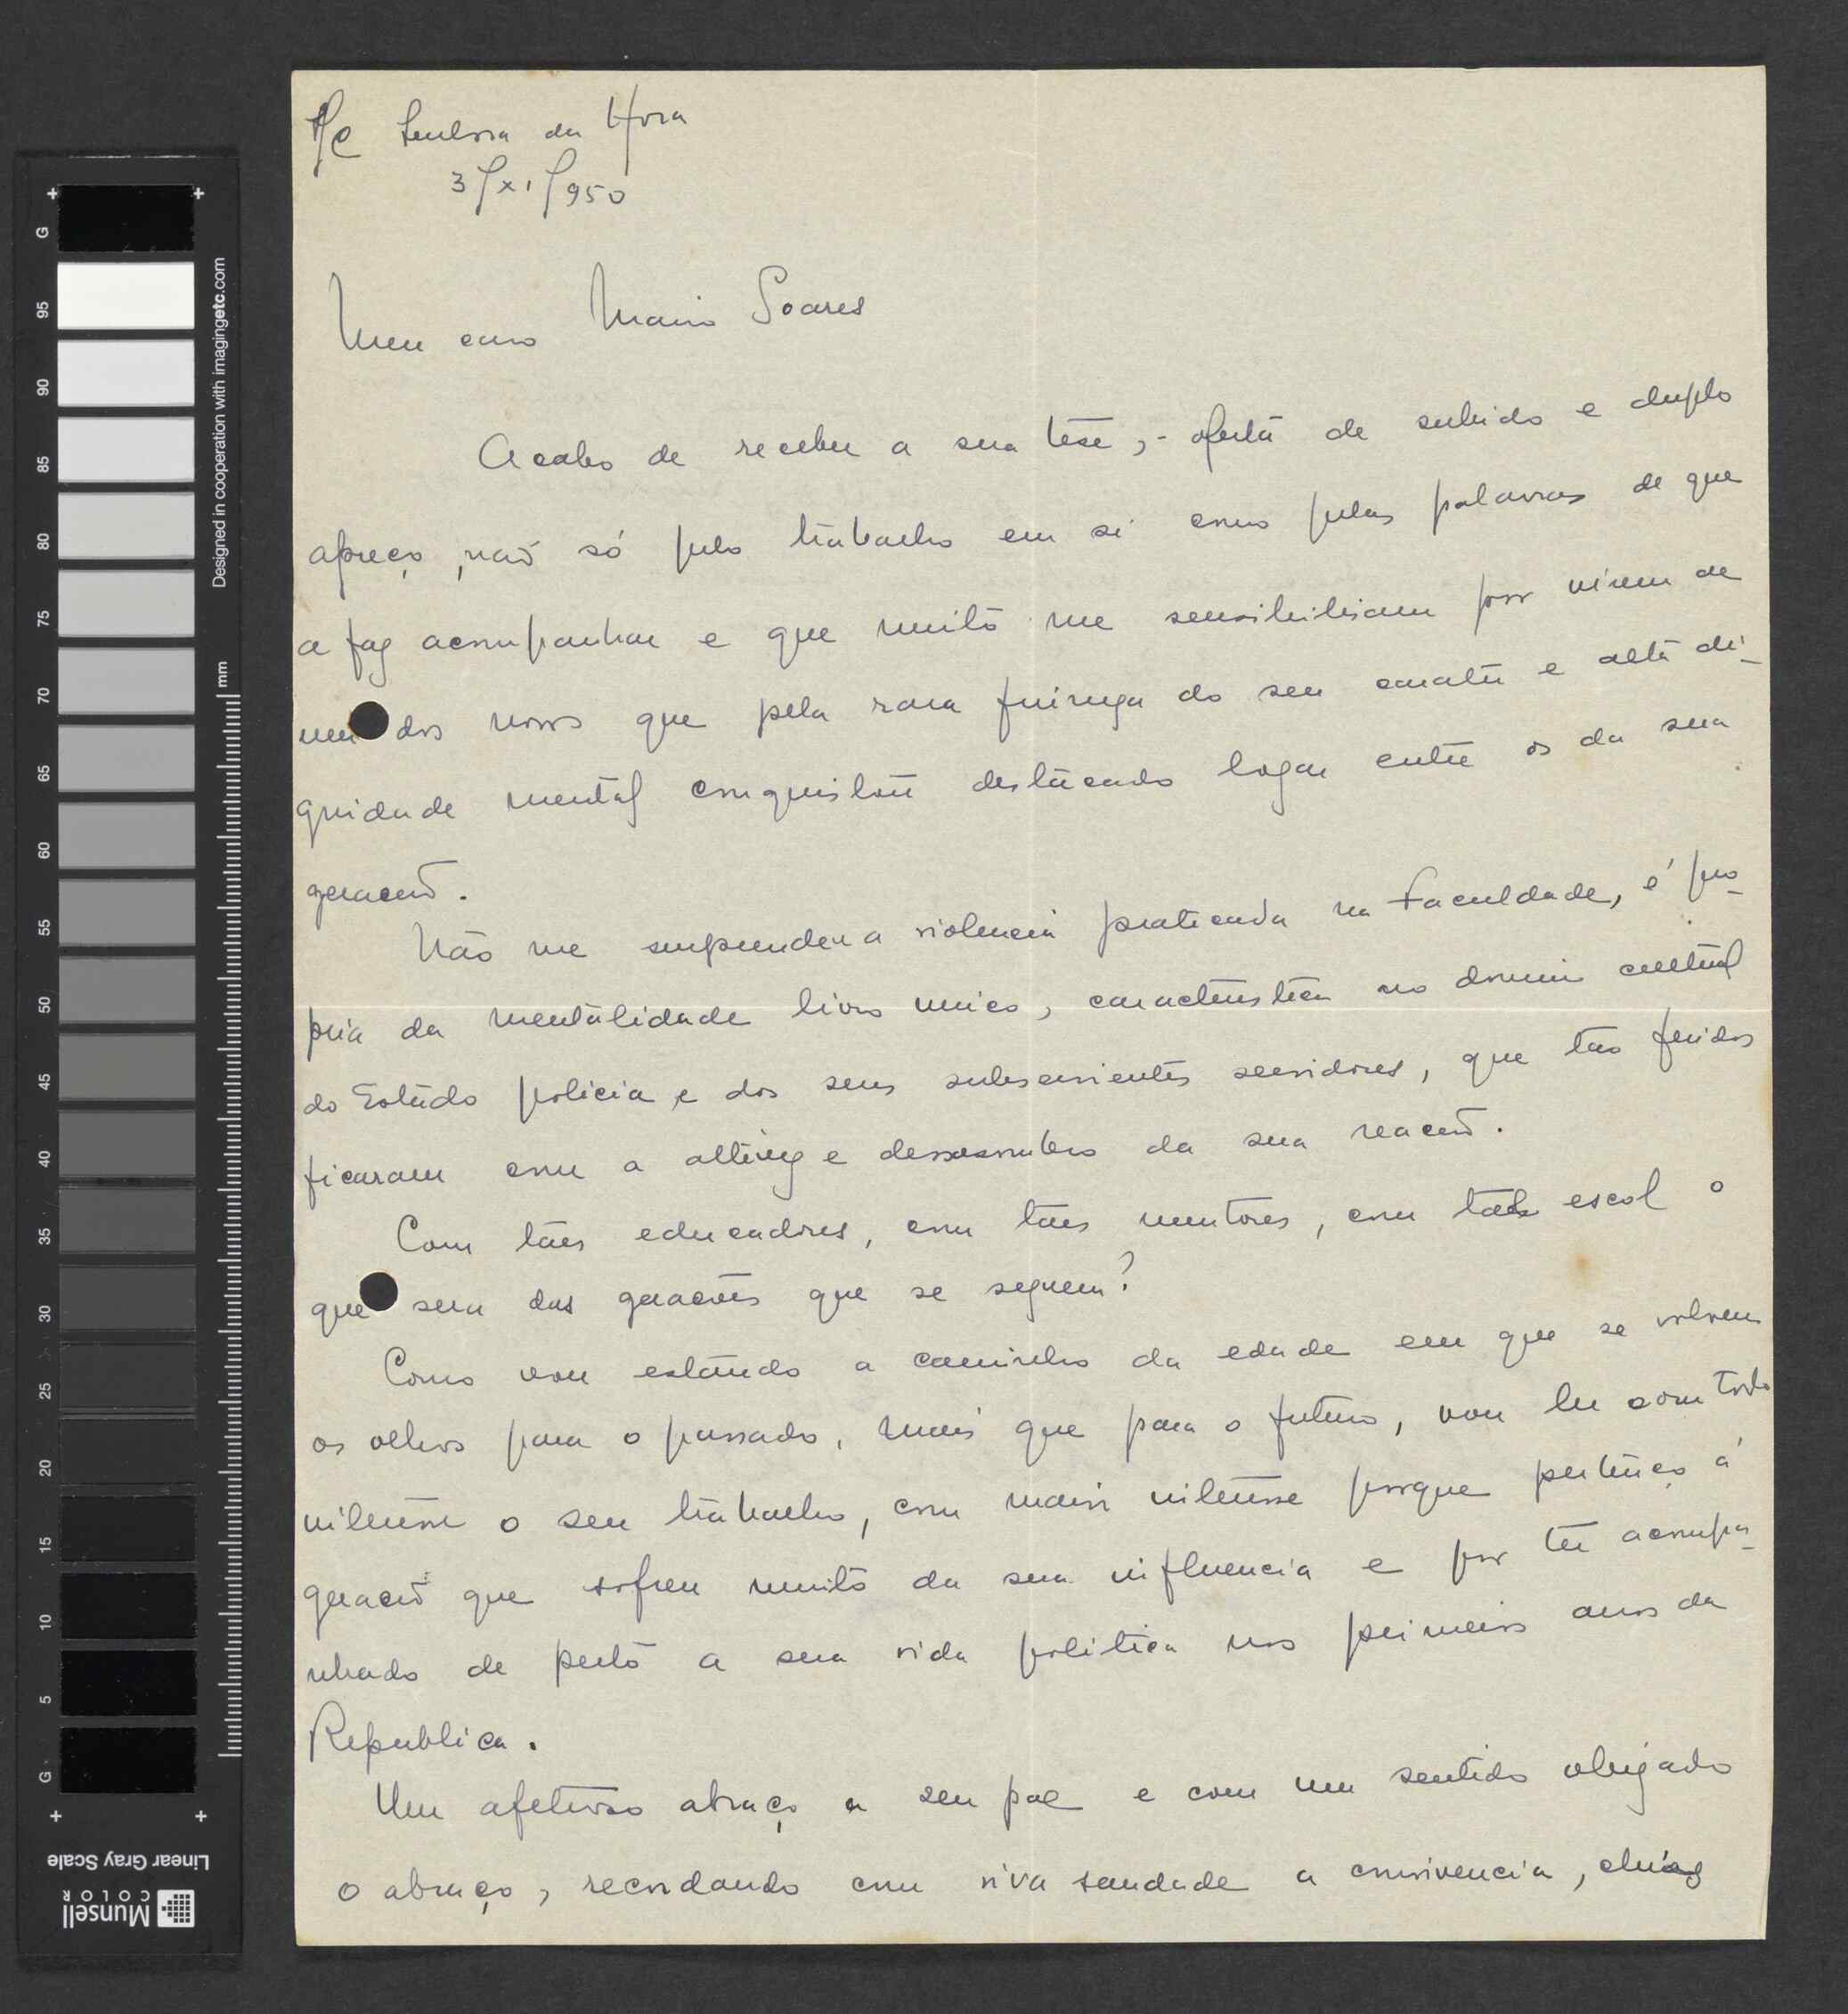 Senhora da Hora
3/XI/950
Meu caro Mario Soares
Acabo de receber a sua tése, - oferta de subido e duplo
apreço, não só pelo trabalho em si como pelas palavras de que
a faz acompanhar e que muito me sensibilisam por virem de
um dos novos que pela rara firmeza do seu caracter e alta di-
gnidade mental conquistou destacado logar entre os da sua
geração.
Não me surpreendeu a violencia praticada na Faculdade, é pro-
pria da mentalidade livro unico, caracteristica no dominio cultural
do Estado policia e dos seus subservientes servidores, que tão feridos
ficaram com a altivez e desassombro da sua reação.
Com tães educadores, com tães mentores, com tal escol o
que sera das gerações que se seguem?
Como vou estando a caminho da edade em que se volvem
os olhos para o passado, mais que para o futuro, vou ler com todo
interesse o seu trabalho, com maior interesse porque pertenço á
geração que sofreu muito da sua influencia e por ter acompa-
nhado de perto a sua vida politica nos primeiros anos da
Republica.
Um afetuoso abraço a seu pae e com um sentido obrigado
o abraço, recordando com viva saudade a convivencia,
Designed in cooperation with imagingetc.com
mm
G
95
90
85
80
75
70
65
60
55
50
45
40
35
30
25
20
15
10
5
G
Linear Gray Scale
Munsell
COLOR